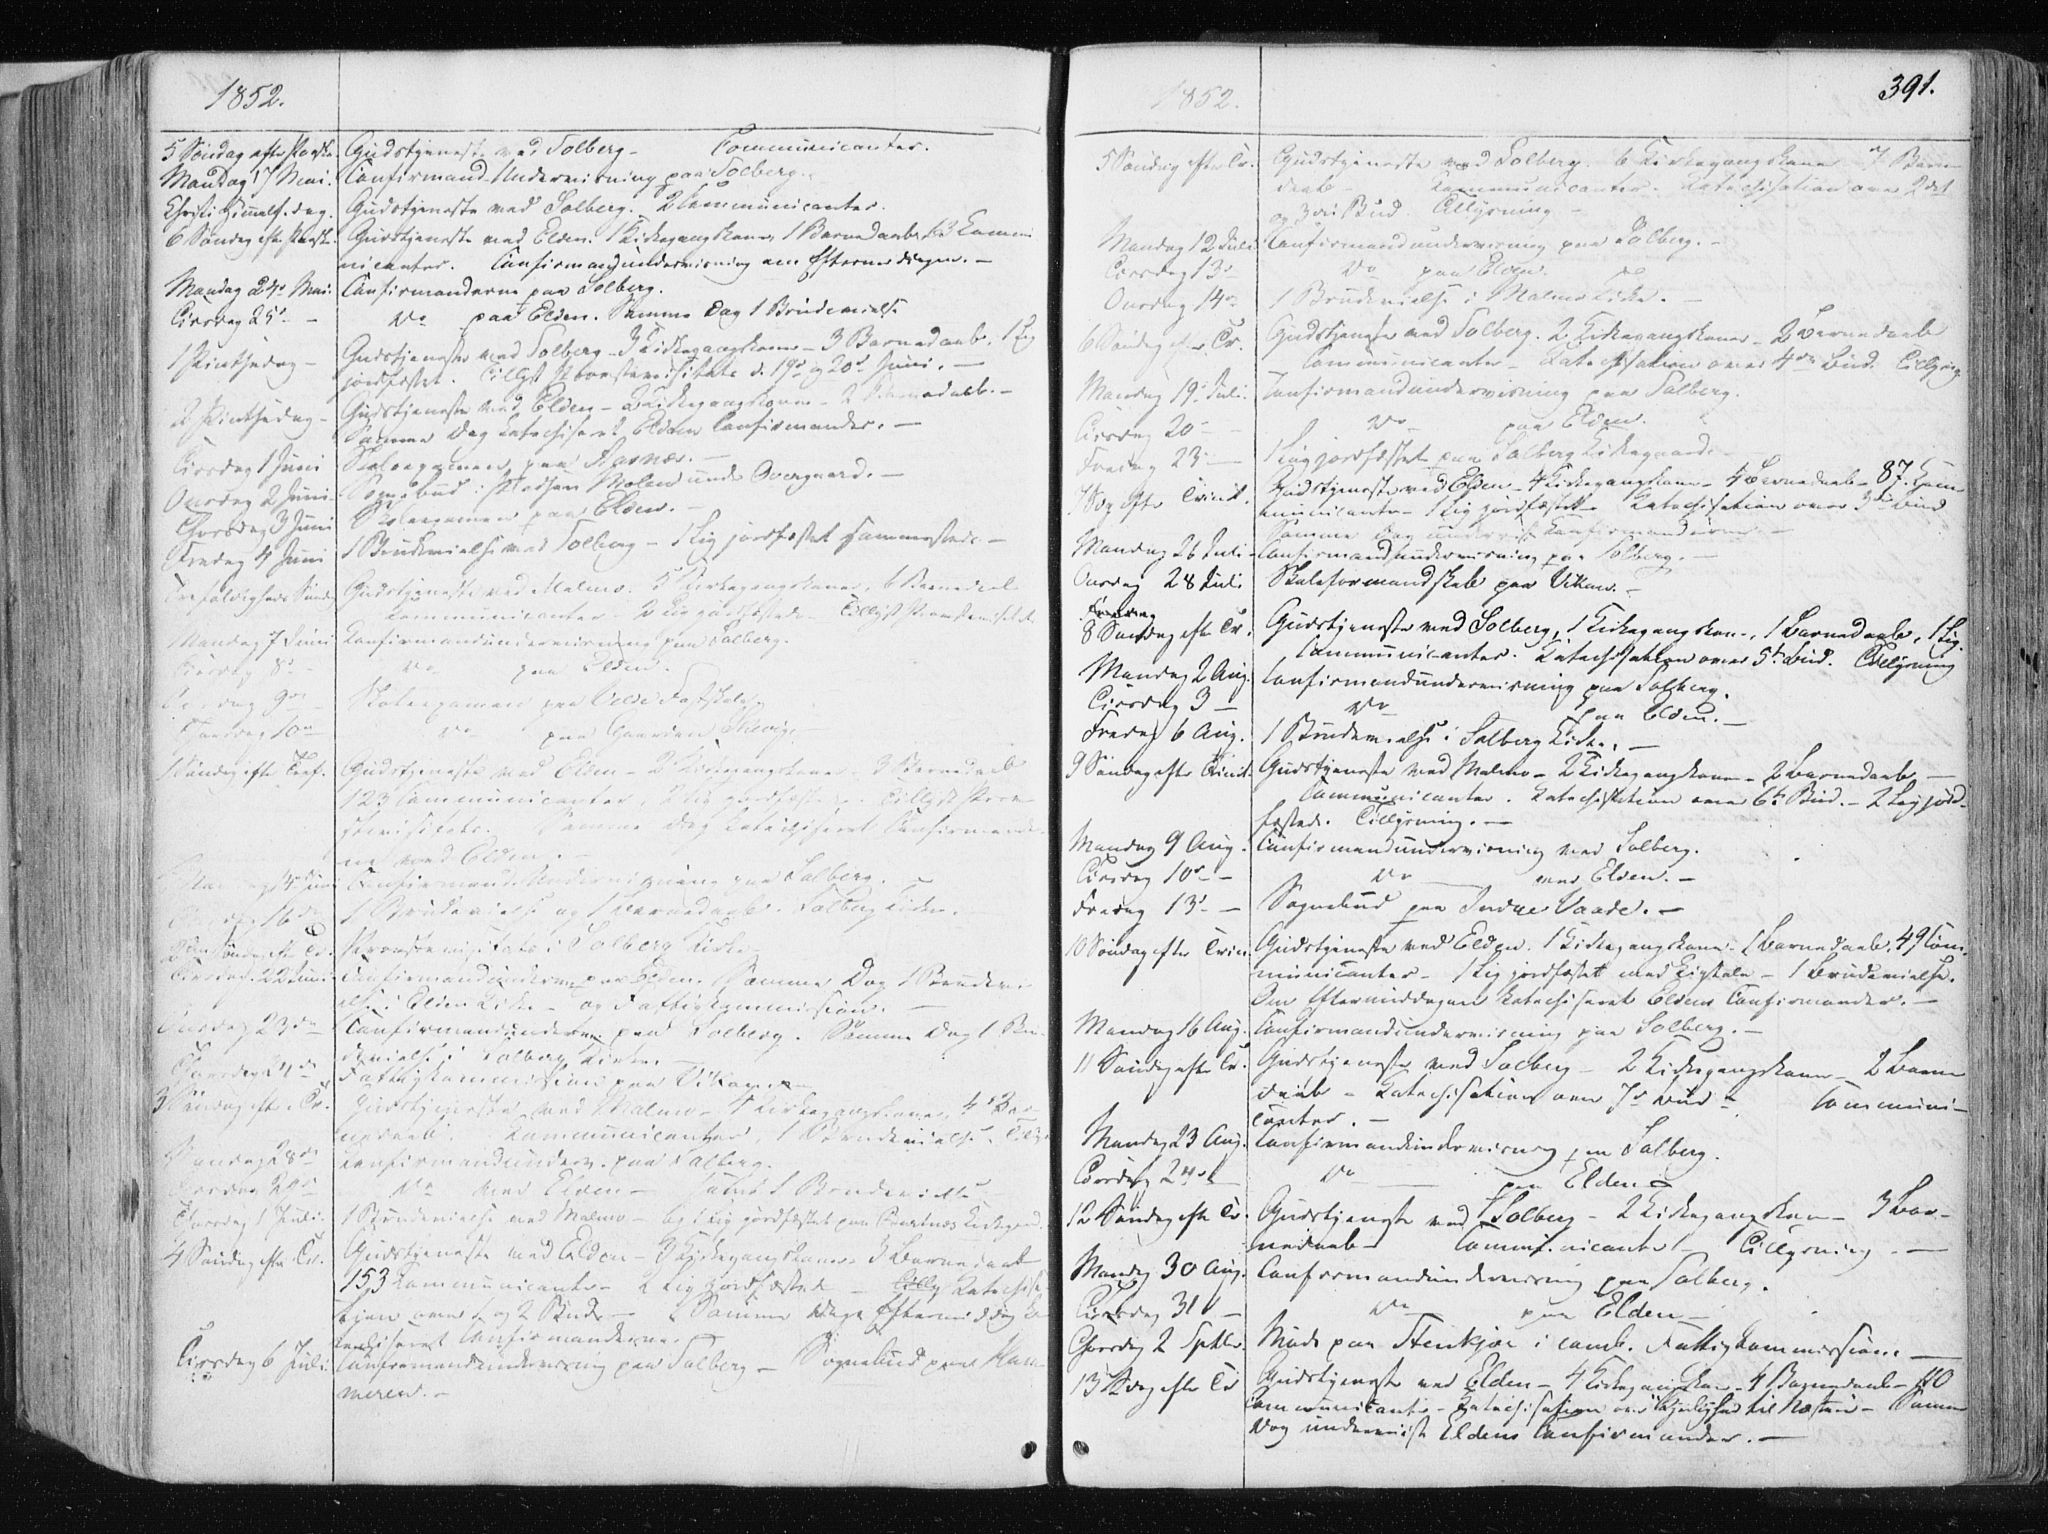 1852.
5 Søndag efter Paaske. Gudstjeneste ved Solberg - Communicanter.
Mandag 17 Mai. Confirmand-Underviisning paa Solberg.
Christi Himmelf. dag. Gudstjeneste ved Solberg. 2 Communicanter.
6 Søndag efter Paaske. Gudstjeneste ved Elden. 1 Kirkegangskone, 1 Barnedaab, Commu
nicanter. Confirmandunderviisning om Eftermiddagen. -
Mandag 24de Mai. Confirmanderne paa Solberg.
Tirsdag 25de - Do paa Elden. Samme Dag 1 Brudevielse
1 Pintsedag - Gudstjeneste ved Solberg - 3 Kirkegangskoner - 3 Barnedaab. 1 Lig
jordfæstet. Tillyst Provstevisitats d. 19de og 20de Juni. -
2 Pintsedag - Gudstjeneste ved Elden - 2 Kirkegangskoner - 2 Barnedaab. -
Samme Dag katechiseret Eldens Confirmander. -
Tirsdag 1 Juni Skoleexamen paa -
Onsdag 2 Juni Sognebud i under Overgaard. -
Thorsdag 3 Juni Skoleexamen paa Elden. -
Fredag 4 Juni 1 Brudevielse ved Solberg - 1 Lig jordfæstet sammesteds. -
Trefoldigheds Søndag Gudstjeneste ved Malmo. 5 Kirkegangskoner, 6 Barnedaab
Communicanter - 2 Lig jordfæstede - Tillyst Provstevisitats
Mandag 7 Juni Confirmandunderviisning paa Solberg.
Tirsdag 8de - Do paa Elden.
9de Skoleexamen paa
Thorsdag 10de Do paa Gaarden
1 Søndag efter Tref. Gudstjeneste ved Elden - 2 Kirkegangskoner - 3 Barnedaab
123 Communicanter 2 Lig jordfæstede. Tillyst Prov-
stevisitats. Samme Dag katechiseret Confirmander-
ne ved Elden. -
Mandag 14 Juni Confirmand-Underviisning paa Solberg.
16de 1 Brudevielse og 1 Barnedaab. Solberg Kirke.
2den Søndag efter Tr. Provstevisitats i Solberg Kirke
Tirsdag 22 Juni. Confirmandunderv. paa Elden. Samme Dag 1 Brudevi-
else i Elden Kirke - og Fattigkommission.
Onsdag 23de Confirmandunderv. paa Solberg. Samme Dag 1 Bru-
devielse i Solberg Kirke. -
Thorsdag 24de Fattigkommission paa Vikan.
3 Søndag efter Tr. Gudstjeneste ved Malmo - 4 Kirkegangskoner, 4 Bar-
nedaab. Communicanter, 1 Brudevielse.
Mandag 28de Confirmandunderv. paa Solberg.
Tirsdag 29de Do ved Elden - samt 1 Brudevielse
Thorsdag 1 Juli. 1 Brudevielse ved Malmo - og 1 Lig jordfæstet paa Kirkegaard.
4 Søndag efter Tr. Gudstjeneste ved Elden - 3 Kirkegangskoner 3 Barnedaab
153 Communicanter - 2 Lig jordfæstede - Katechisa-
tion over 1 og 2 Bud - Samme Dags Eftermiddag ka-
techiseret Confirmanderne.
Tirsdag 6 Juli. Confirmandunderviisning paa Solberg - Sognebud paa Ham-
meren. -
391.
1852.
5 Søndag efter Tr. Gudstjeneste ved Solberg. 6 Kirkegangskoner 7 Barne-
daab - Communicanter. Katechisation over 2det
og 3die Bud. Tillysning -
Mandag 12 Juli Confirmandunderviisning paa Solberg. -
Tirsdag 13de Do paa Elden.
Onsdag 14de 1 Brudevielse i Malmo Kirke. -
6 Søndag efter Tr. Gudstjeneste ved Solberg. 2 Kirkegangskoner - 2 Barnedaab
Communicanter - Katechisation over 4de Bud. Tillysning
Mandag 19de Juli. Confirmandunderviisning paa Solberg.
Tirsdag 20 - Do paa Elden.
Fredag 23 - 1 Lig jordfæstet paa Solberg Kirkegaard -
7 Sdg efter Trinit. Gudstjeneste ved Elden - 4 Kirkegangskoner - 4 Barnedaab - 87 Com-
municanter - 1 Lig jordfæstet - Katechisation over 3die Bud
Samme Dag underviist Confirmanderne. -
Mandag 26 Juli Confirmandunderviisning paa Solberg. -
Onsdag 28 Juli. Skoleformandskab paa Vikan. -
8 Søndag efter Tr. Gudstjeneste ved Solberg, 1 Kirkegangskone, 1 Barnedaab, 1 Lig.
Communicanter. Katechisation over 5te Bud. Tillysning
Mandag 2 Aug. Confirmandunderviisning paa Solberg.
Tirsdag 3 - Do paa Elden. -
Fredag 6 Aug. 1 Brudevielse i Solberg Kirke. -
9 Søndag efter Trinit. Gudstjeneste ved Malmo - 2 Kirkegangskoner - 2 Barnedaab -
Communicanter. Katechisation over 6te Bud. - 2 Lig jord-
fæstede. Tillysning. -
Mandag 9 Aug. Confirmandunderviisning ved Solberg.
Tirsdag 10de - Do ved Elden. -
Fredag 13de - Sognebud paa Indre Vaade. -
10 Søndag efter Trin. Gudstjeneste ved Elden. 1 Kirkegangskone - 1 Barnedaab. 49 Com-
municanter - 1 Lig jordfæstet med Ligtale - 1 Brudevielse.
Om Eftermiddagen katechiseret Eldens Confirmander. -
Mandag 16 Aug. Confirmandunderviisning paa Solberg. -
11 Søndag efter Tr. Gudstjeneste ved Solberg - 2 Kirkegangskoner - 2 Barne
daab - Katechisation over 7de Bud - Communi-
canter. -
Mandag 23 Aug. Confirmandunderviisning paa Solberg.
Tirsdag 24de Do paa Elden
12 Søndag efter Tr. Gudstjeneste ved Solberg - 2 Kirkegangskoner - 3 Bar-
nedaab - Communicanter - Tillysning. -
Mandag 30 Aug. Confirmandunderviisning paa Solberg.
Tirsdag 31 - Do paa Elden -
Thorsdag 2 Septbr. Møde paa Stenkjær i comb. Fattigkommission. -
13 Sdag efter Tr Gudstjeneste ved Elden - 4 Kirkegangskoner - 4 Barnedaab - 110
Communicanter - Katechisation over Kjærlighed til Næsten - Samme
Dag underviist Eldens Confirmander. -